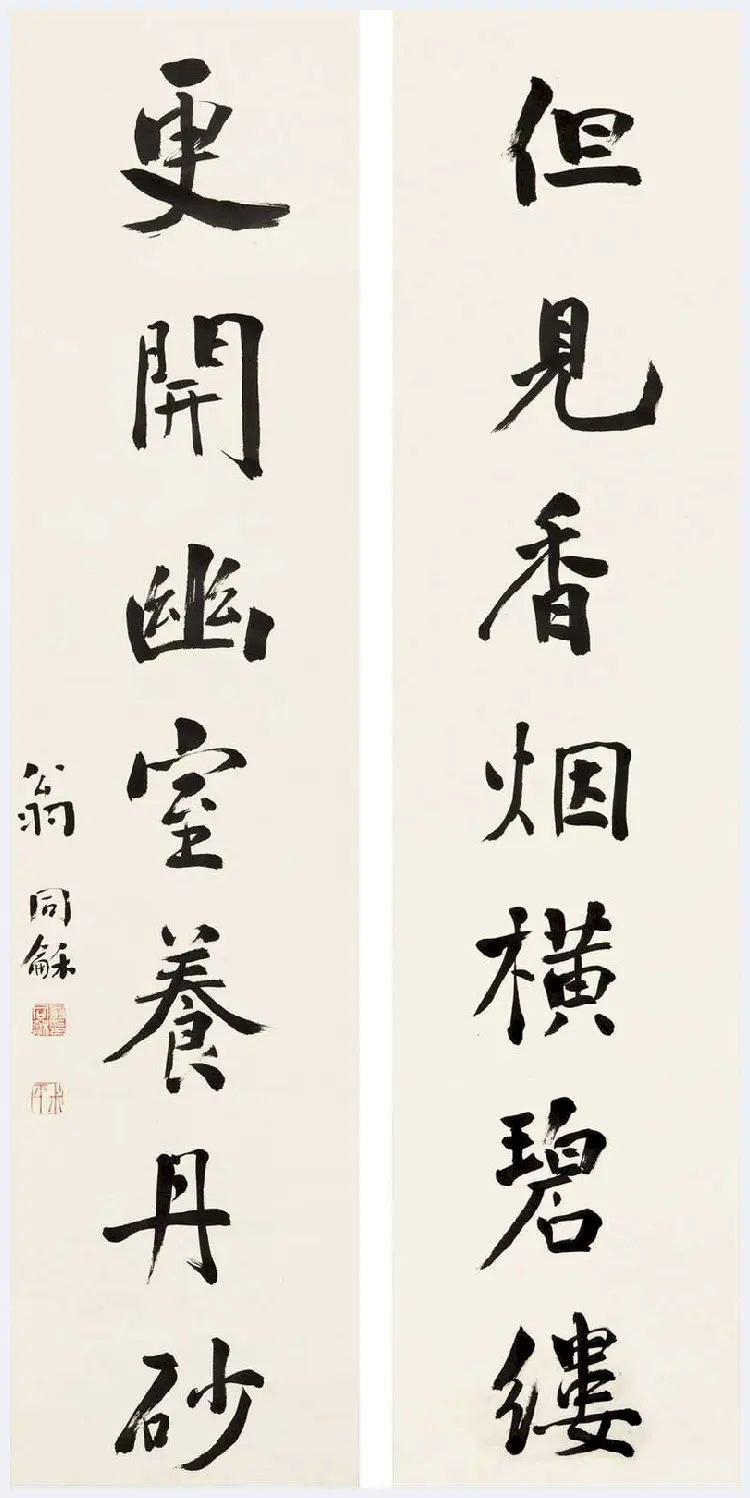 但見香烟橫碧縷
更開幽室養丹砂
翁同龢